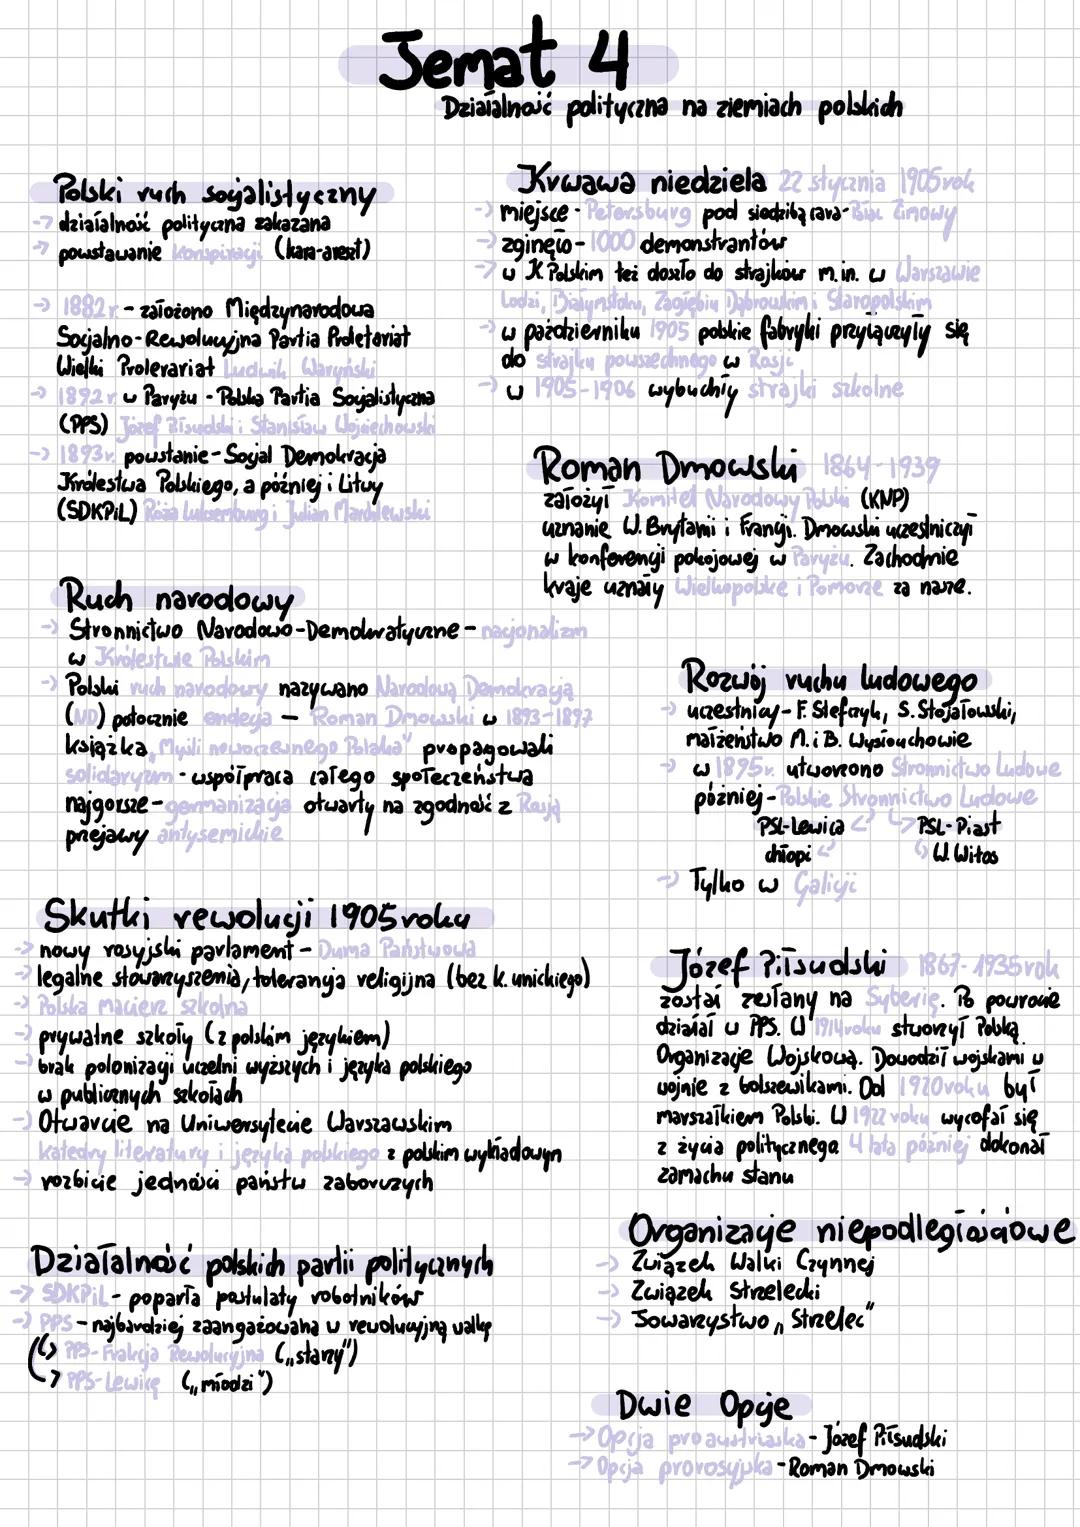 Temat 4
Działalność polityczna na ziemiach polskich
Polski ruch socjalistyczny
-> działalność polityczna zakazana
-> powstawanie konspiracji (kara-areszt)
-> 1882r - założono Międzynarodowa
Socjalno-Rewolucyjna Partia Proletariat
Wielki Prolerariat Ludwik Waryński
-> 1892r w Paryżu - Polska Partia Socjalistyczna
(PPS) Józef Piłsudski i Stanisław Wojciechowski
-> 1893r. powstanie - Socjal Demokracja
Królestwa Polskiego, a później i Litwy
(SDKPiL) Róża Luksemburg i Julian Marchlewski
Ruch narodowy
-> Stronnictwo Narodowo-Demokratyczne - nacjonalizm
w Królestwie Polskim
-> Polski ruch narodowy nazywano Narodową Demokracją
(ND) potocznie endecja - Roman Dmowski w 1893-1897
książka „Myśli nowoczesnego Polaka" propagowali
solidaryzm - współpraca całego społeczeństwa
najgorsze - germanizacja otwarty na zgodność z Rosją
przejawy antysemickie
Skutki rewolucji 1905 roku
-> nowy rosyjski parlament - Duma Państwowa
-> legalne stowarzyszenia, tolerancja religijna (bez k. unickiego)
-> Polska Macierz szkolna
-> prywatne szkoły (z polskim językiem)
-> brak polonizacji uczelni wyższych i języka polskiego
w publicznych szkołach
-> Otwarcie na Uniwersytecie Warszawskim
katedry literatury i języka polskiego z polskim wykładowyn
-> rozbicie jedności państw zaborczych
Działalność polskich partii politycznych
-> SDKPiL - poparła postulaty robotników
-> PPS - najbardziej zaangażowana w rewolucyjną walkę
-> PPS - Frakcja Rewolucyjna („starzy")
-> PPS-Lewicę („młodzi")
Krwawa niedziela 22 stycznia 1905 rok
-> miejsce - Petersburg pod siedzibą cara - Pałac Zimowy
-> zginęło - 1000 demonstrantów
-> w K. Polskim też doszło do strajków m.in. w Warszawie
Łodzi, Białymstoku, Zagłębiu Dąbrowskim i Staropolskim
-> w październiku 1905 polskie fabryki przyłączyły się
do strajku powszechnego w Rosji
-> w 1905-1906 wybuchły strajki szkolne
Roman Dmowski 1864-1939
założył Komitet Narodowy Polski (KNP)
uznanie W. Brytanii i Francji. Dmowski uczestniczył
w konferencji pokojowej w Paryżu. Zachodnie
kraje uznały Wielkopolskę i Pomorze za nasze.
Rozwój ruchu ludowego
-> uczestnicy - F. Stefczyk, S. Stojałowski,
małżeństwo M. i B. Wysłouchowie
-> w 1895r. utworzono Stronnictwo Ludowe
później - Polskie Stronnictwo Ludowe
PSL-Lewica <- -> PSL-Piast
chłopi <- -> W. Witos
-> Tylko w Galicji
Józef Piłsudski 1867-1935 rok
został zesłany na Syberię. Po powrocie
działał w PPS. W 1914 roku stworzył Polską
Organizację Wojskową. Dowodził wojskami w
wojnie z bolszewikami. Od 1920 roku był
marszałkiem Polski. W 1922 roku wycofał się
z życia politycznego 4 lata później dokonał
zamachu stanu
Organizacje niepodległościowe
-> Związek Walki Czynnej
-> Związek Strzelecki
-> Towarzystwo „Strzelec"
Dwie Opcje
-> Opcja proaustriacka - Józef Piłsudski
-> Opcja prorosyjska - Roman Dmowski